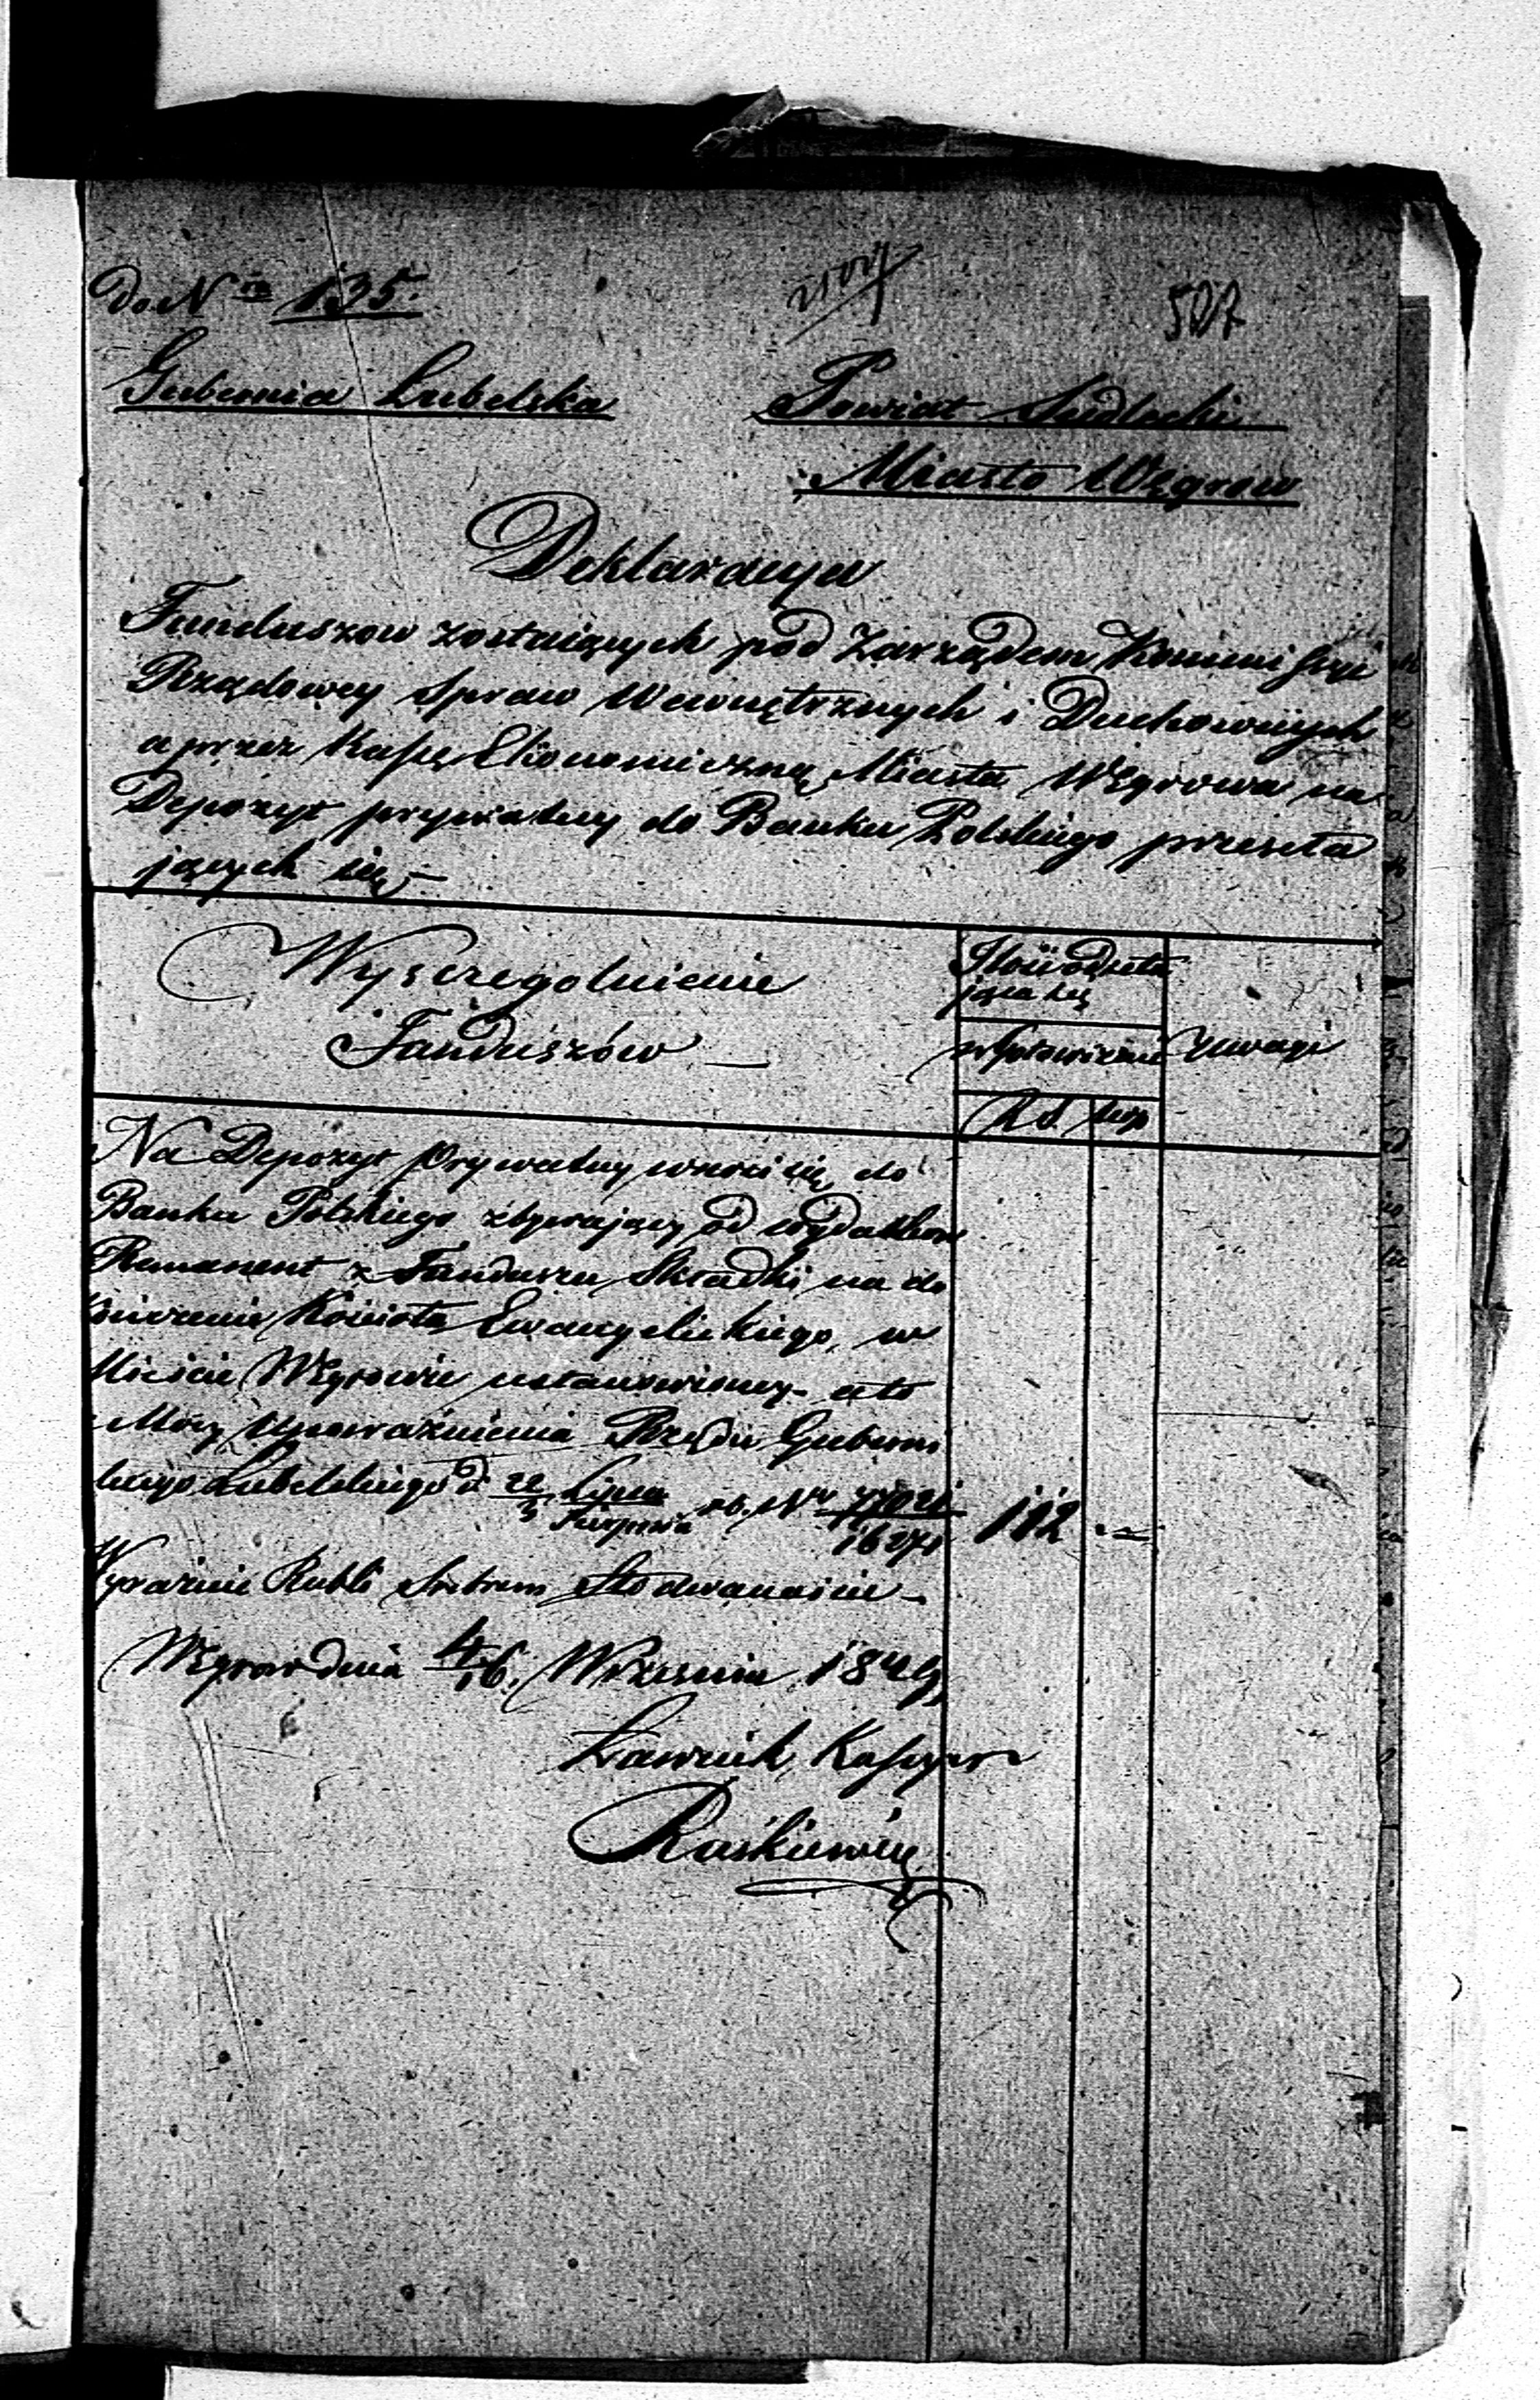 do Nro 135.
527
Gubernia Lubelska
Powiat Siedlecki
Miasto Węgrów
Deklaracya
Funduszow zostaiących pod Zarządem Kommissyi
Rządowey Spraw Wewnętrznych i Duchownych
a przez Kassę Ekonomiczną Miasta Węgrowa na
Depozyt prywatny do Banku Polskiego przesyła
jących się,
Wyszczegolnienie
Funduszów
Ilość odseła
jąca się
w gotowiznie
Uwagi
Rs. kop
Na Depozyt Prywatny wnosi się do
Banku Polskiego zbywający od wydatkow
Remanent z Funduszu Składki na do
kończenie Kościoła Ewangelickiego, w
Mieście Węgrowie ustanowioney - a to
z Mocy Upoważnienia Rządu Guberni
lnego Lubelskiego d. 22/3 Lipca/Sierpnia rb. Nr 77021/16271
112 . —
Wyraznie Rubli Srebrem Sto dwanaście -
Węgrow dnia 4/16. Września 1849
Ławnik Kassyer
Raśkiewicz